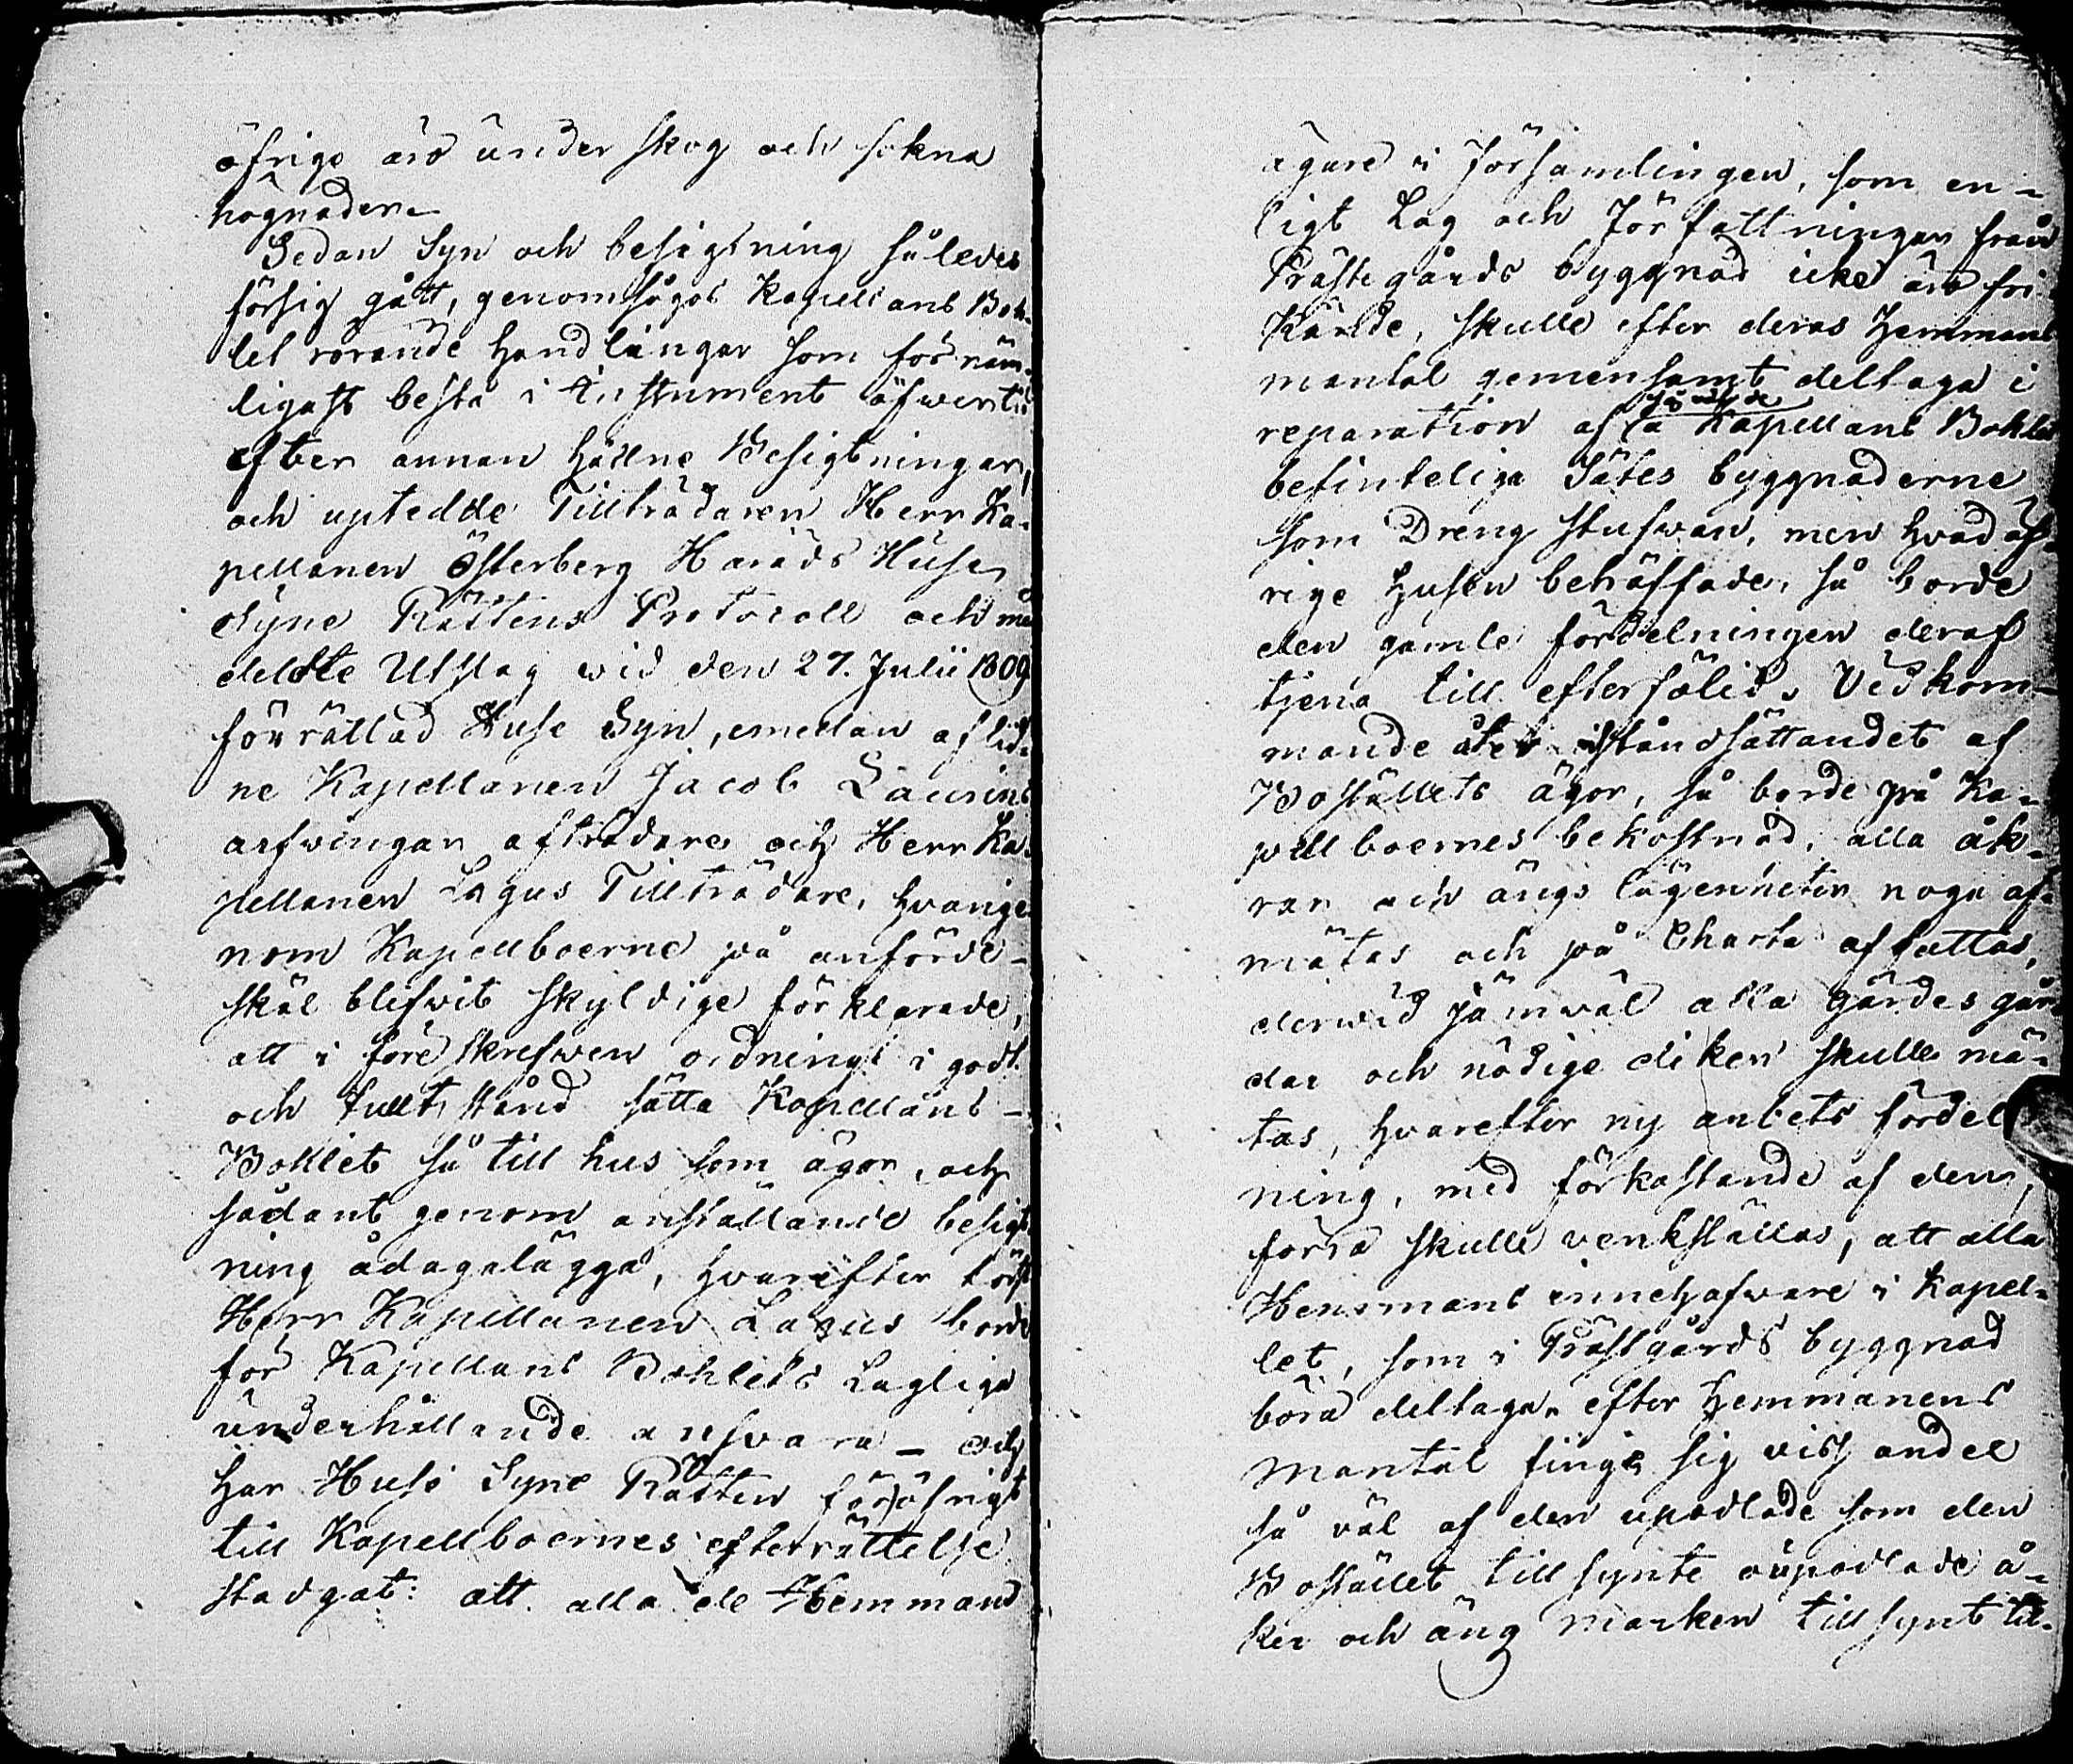 öfrige äro under skog och sakna
högnaden.
Sedan Syn och besigtning således
försig gått, genomsågos Kapellans Boh-
let rörande Handlingar som för näm-
ligast bestå i Instrument öfwer tid
efter annan hållne Besigtningar,
och uptedde Tillträdaren Herr Ka-
pellanen Österberg Härads Huse
syne Rättens Protocoll och med
delste Utslag wid den 27. Julii 1809
förrättad Huse Syn, emellan aflid-
ne Kapellanen Jacob Laurins
arfwingar afträdare och Herr Ka-
pellanen Lagus Tillträdare, hvarige
nom Kapellboerne på anförde
skäl blifwit skyldige förklarade,
att i föreskrefwen ordning i godt
och fullt stånd sätta Kapellans
Bohlet så till hus som ägor, och
sådant genom anställande besigt
ning ådagalägga, hvarefter först
Herr Kapellanen Lagus borde
för Kapellans Bohlets Lagliga
underhållande ansvara – och
har Huse Syne Rätten föröfrigt
till Kapellboernes efterrättelse
stadgat: att alla de Hemmans
ägare i Församlingen, som en-
ligt Lag och Författningar från
Prästegårds byggnad icke äro fri-
kände, skulle efter deras Hemmans
mantal gemensamt deltaga i
reparation af så wäl de å Kapellans Bohlet
befinteliga Sätes byggnaderne
som Dreng stufwan, men hvad öf-
rige Husen behöffade, så borde
den gamle fördelningen deraf
tjena till efterfölied. Vedkom-
mande åter iståndsättandet af
Boställets ägor, så borde på Ka-
pellboernes bekostnad, alla åk-
rar och ängs lägenheter noga af-
mätas och på Charta affattas,
derwid jämwäl alla gärdesgår-
dar och nödige diken skulle mä-
tas, hvarefter ny arbets fördel
ning, med förkastande af den
förra skulle verkställas, att alla
Hemmans innehafware i Kapel-
let, som i Prästgårds byggnad
böra deltaga, efter Hemmanens
Mantal finge sig viss andel
så väl af den upodlade som den
Bostället tillsynte oupodlade å-
ker och äng marken tillsynt til-